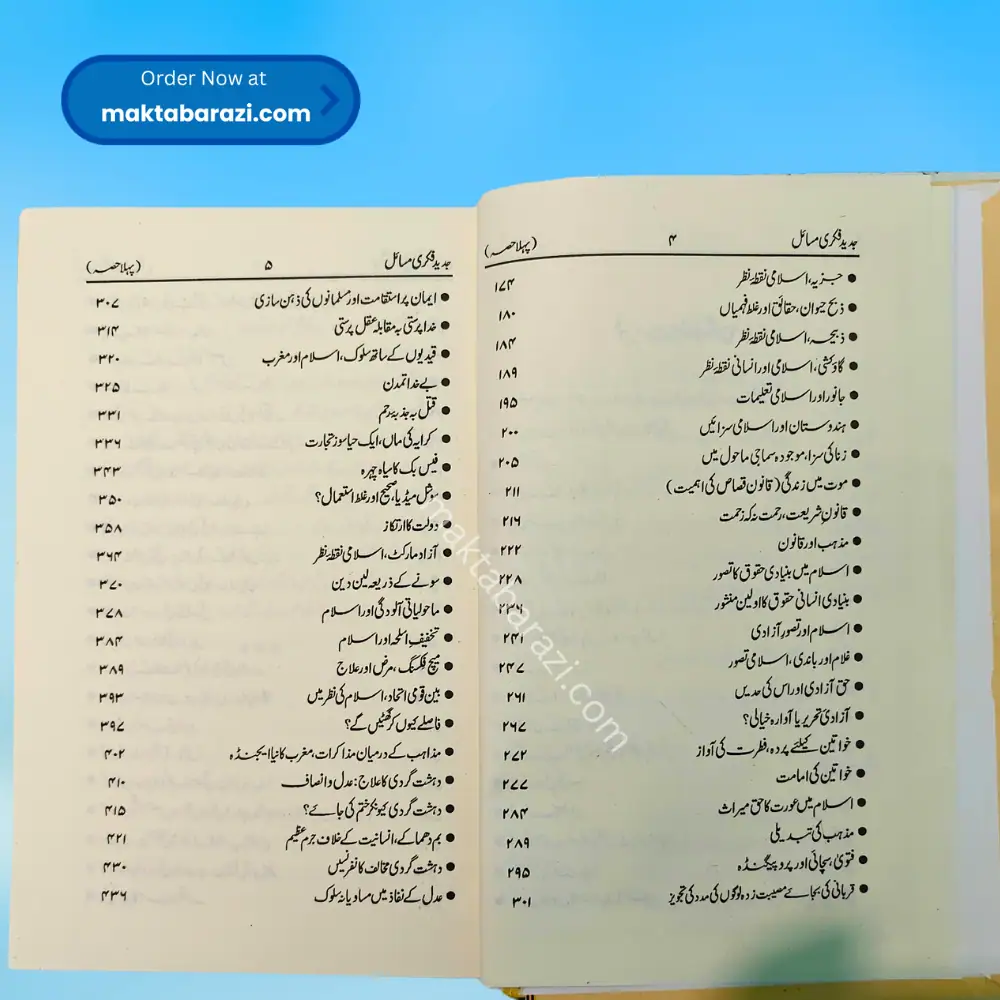 Order Now at
maktabarazi.com
جدید فکری مسائل ۴ (پہلا حصہ)
● جزیہ، اسلامی نقطۂ نظر ۱۷۴
● ذبح حیوان، حقائق اور غلط فہمیاں ۱۸۰
● ذبیحہ، اسلامی نقطۂ نظر ۱۸۴
● گاؤ کشی، اسلامی اور انسانی نقطۂ نظر ۱۸۹
● جانور اور اسلامی تعلیمات ۱۹۵
● ہندوستان اور اسلامی سزائیں ۲۰۰
● زنا کی سزا، موجودہ سماجی ماحول میں ۲۰۵
● موت میں زندگی (قانون قصاص کی اہمیت) ۲۱۱
● قانونِ شریعت، رحمت نہ کہ زحمت ۲۱۶
● مذہب اور قانون ۲۲۲
● اسلام میں بنیادی حقوق کا تصور ۲۲۸
● بنیادی انسانی حقوق کا اولین منشور ۲۳۶
● اسلام اور تصور آزادی ۲۴۱
● غلام اور باندی، اسلامی تصور ۲۴۷
● حق آزادی اور اس کی حدیں ۲۶۱
● آزادیٔ تحریر یا آوارہ خیالی؟ ۲۶۷
● خواتین کیلئے پردہ، فطرت کی آواز ۲۷۲
● خواتین کی امامت ۲۷۷
● اسلام میں عورت کا حق میراث ۲۸۴
● مذہب کی تبدیلی ۲۸۹
● فتویٰ، سچائی اور پروپیگنڈہ ۲۹۵
● قربانی کی بجائے مصیبت زدہ لوگوں کی مدد کی تجویز ۳۰۱
جدید فکری مسائل ۵ (پہلا حصہ)
● ایمان پر استقامت اور مسلمانوں کی ذہن سازی ۳۰۷
● خدا پرستی بہ مقابلہ عقل پرستی ۳۱۴
● قیدیوں کے ساتھ سلوک، اسلام اور مغرب ۳۲۰
● بے خدا تمدن ۳۲۵
● قتل بہ جذبۂ رحم ۳۳۱
● کرایہ کی ماں، ایک حیا سوز تجارت ۳۳۶
● فیس بک کا سیاہ چہرہ ۳۴۳
● سوشل میڈیا، صحیح اور غلط استعمال؟ ۳۵۰
● دولت کا ارتکاز ۳۵۸
● آزاد مارکٹ، اسلامی نقطۂ نظر ۳۶۴
● سونے کے ذریعہ لین دین ۳۷۰
● ماحولیاتی آلودگی اور اسلام ۳۷۸
● تخفیف اسلحہ اور اسلام ۳۸۴
● میچ فکسنگ، مرض اور علاج ۳۸۹
● بین قومی اتحاد، اسلام کی نظر میں ۳۹۳
● فاصلے کیوں کر گھٹیں گے؟ ۳۹۷
● مذاہب کے درمیان مذاکرات، مغرب کا نیا ایجنڈہ ۴۰۲
● دہشت گردی کا علاج: عدل و انصاف ۴۱۰
● دہشت گردی کیونکر ختم کی جائے؟ ۴۱۵
● بم دھماکے، انسانیت کے خلاف جرم عظیم ۴۲۱
● دہشت گردی مخالف کانفرنسیں ۴۳۰
● عدل کے نفاذ میں مساویانہ سلوک ۴۳۶
maktabarazi.com